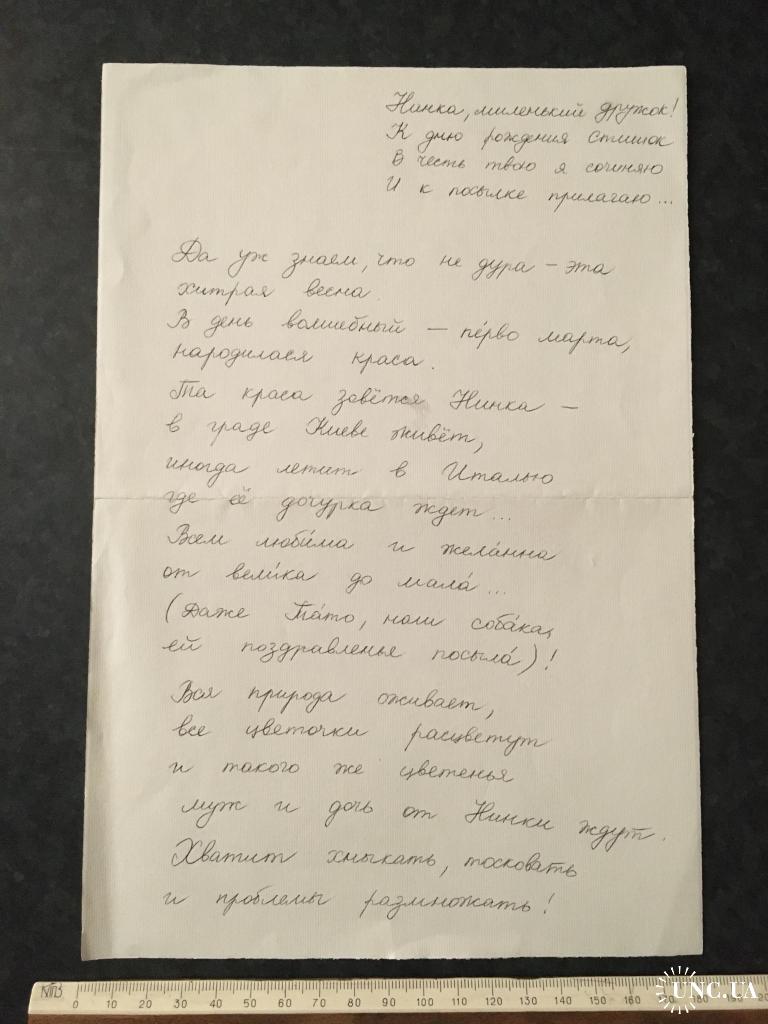 Нинка, миленький дружок!
К дню рождения стишок
В честь твою я сочиняю
И к посылке прилагаю...
Да уж знаем, что не дура – эта
хитрая весна.
В день волшебный – пе́рво марта,
народилася краса.
Та краса зовётся Нинка –
в граде Киеве живёт,
иногда летит в Италью
где её дочурка ждет...
Всем люби́ма и жела́нна
от вели́ка до мала́...
(Даже Та́то, наш соба́ка,
ей поздравленье посыла́)!
Вся природа оживает,
все цветочки расцветут
и такого же цветенья
муж и дочь от Нинки ждут.
Хватит хныкать, тосковать
и проблемы размножать!
0 10 20 30 40 50 60 70 80 90 100 110 120 130 140 150 160 180 190
UNC.UA